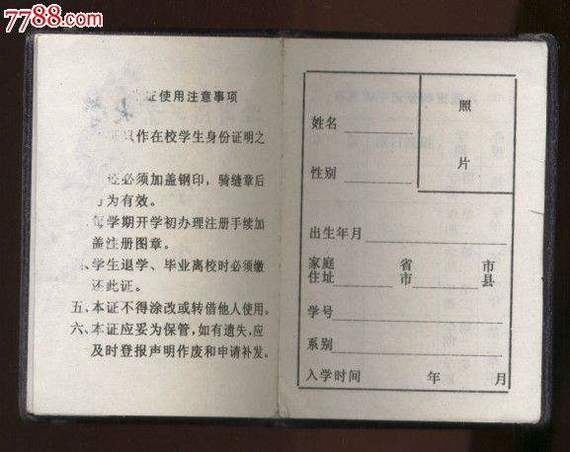 7788.com
证使用注意事项
只作在校学生身份证明之
必须加盖钢印，骑缝章后
为有效。
每学期开学初办理注册手续加
盖注册图章。
、学生退学、毕业离校时必须缴
还此证。
五、本证不得涂改或转借他人使用。
六、本证应妥为保管，如有遗失，应
及时登报声明作废和申请补发。
照
片
姓名
性别
出生年月
家庭 省 市
住址 市 县
学号
系别
入学时间 年 月